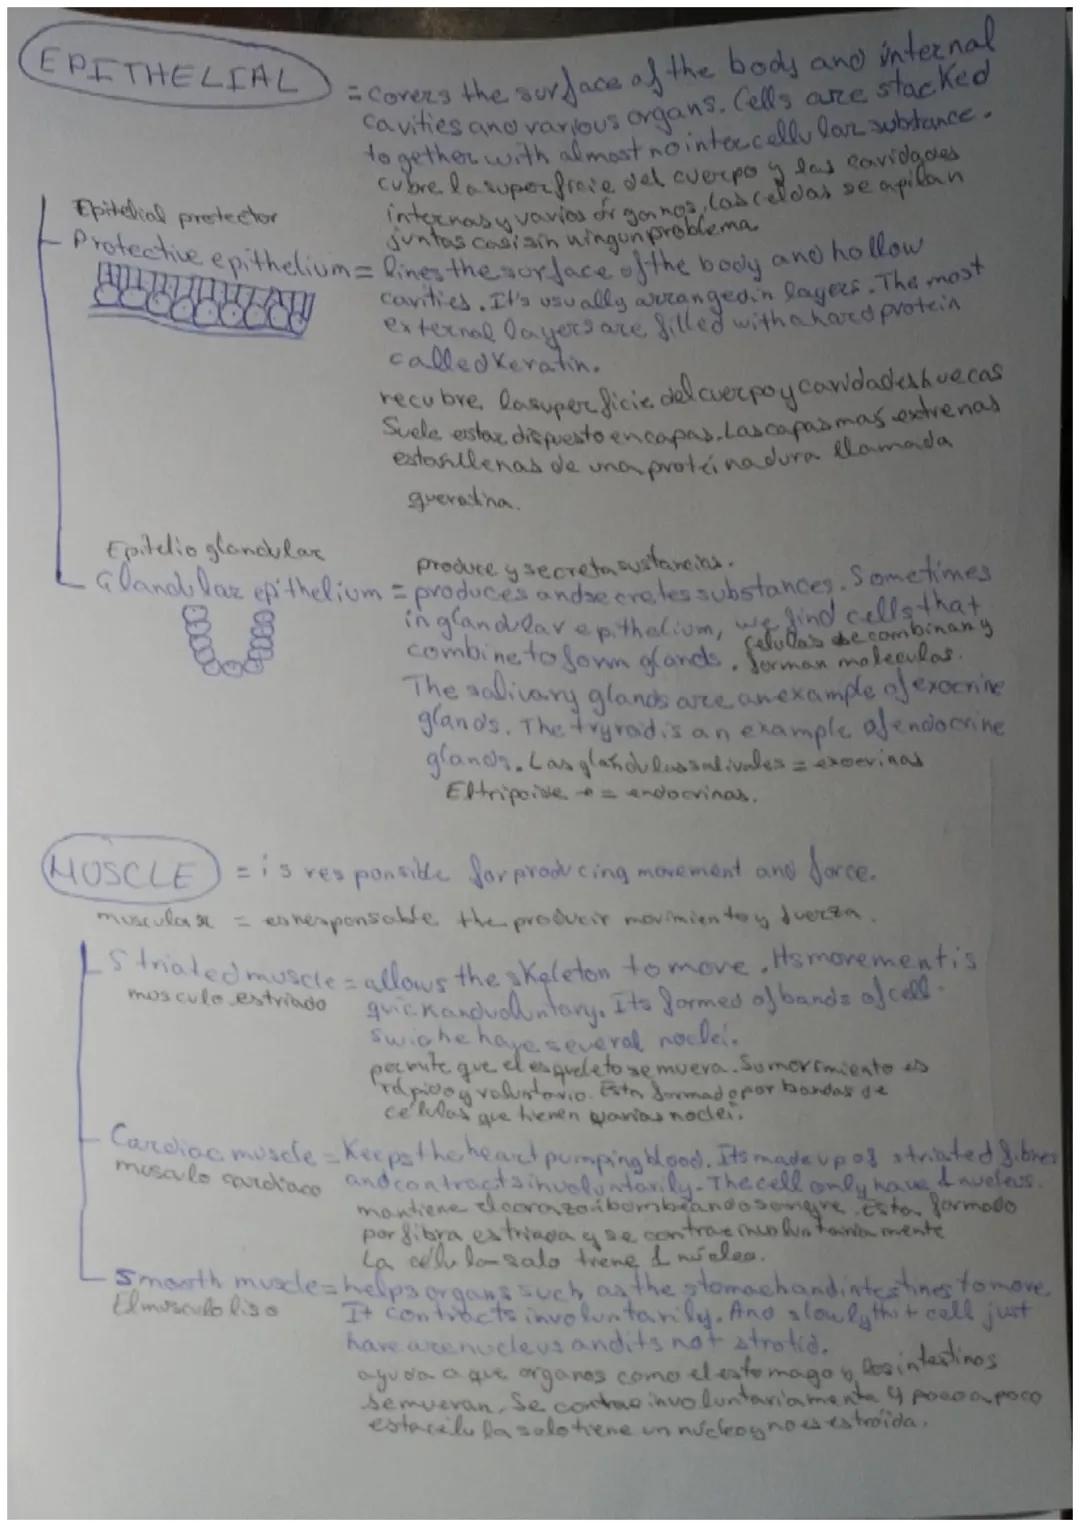 EPITHELIAL
= covers the surface of the body and internal
cavities and various organs. Cells are stacked
together with almost no intercellular substance.
cubre la superficie del cuerpo y las cavidades
internas y varios órganos, las celdas se apilan
juntas casi sin ningun problema
Epitelial protector
Protective epithelium = lines the surface of the body and hollow
cavities. It's usually arranged in layers. The most
external layers are filled with a hard protein
called Keratin.
recubre la superficie del cuerpo y cavidades huecas
Suele estar dispuesto en capas. Las capas mas extrenas
estan llenas de una proteína dura llamada
queratina.
Epitelio glandular
produce y secreta sustancias.
Glandular epithelium = produces and secretes substances. Sometimes
in glandular epithelium, we find cells that
células se combinan y
combine to form glands. forman moleculas.
The salivary glands are an example of exocrine
glands. The tryroid is an example of endocrine
glands. Las glandulas salivales = exocrinas
= endocrinas.
MUSCLE = is responsible for producing movement and force.
muscular = es responsable the producir movimiento y fuerza.
Striated muscle = allows the skeleton to move. Its movement is
musculo estriado
quick and voluntary. Its formed of bands of cell
have several nuclei.
permite que el esqueleto se muera. Su movimiento es
rápido y voluntario. Esta formado por bandas de
células que tienen varias nuclei.
Cardiac muscle = Keeps the heart pumping blood. Its made up of striated fibres
musculo cardiaco
and contracts involuntarily. The cell only have 1 nucleus.
mantiene el corazon bombeando sangre. Esta formado
por fibra estriada y se contrae involuntariamente
La célula solo tiene 1 núcleo.
Smooth muscle = helps organs such as the stomach and intestines to move.
El musculo liso
It contracts involuntarily. And slowly cell just
have are nucleus and its not
ayuda a que organos como el estomago y los intestinos
se mueran. Se contrae involuntariamente y poco a poco
esta célula solo tiene un núcleo y no es estroída.